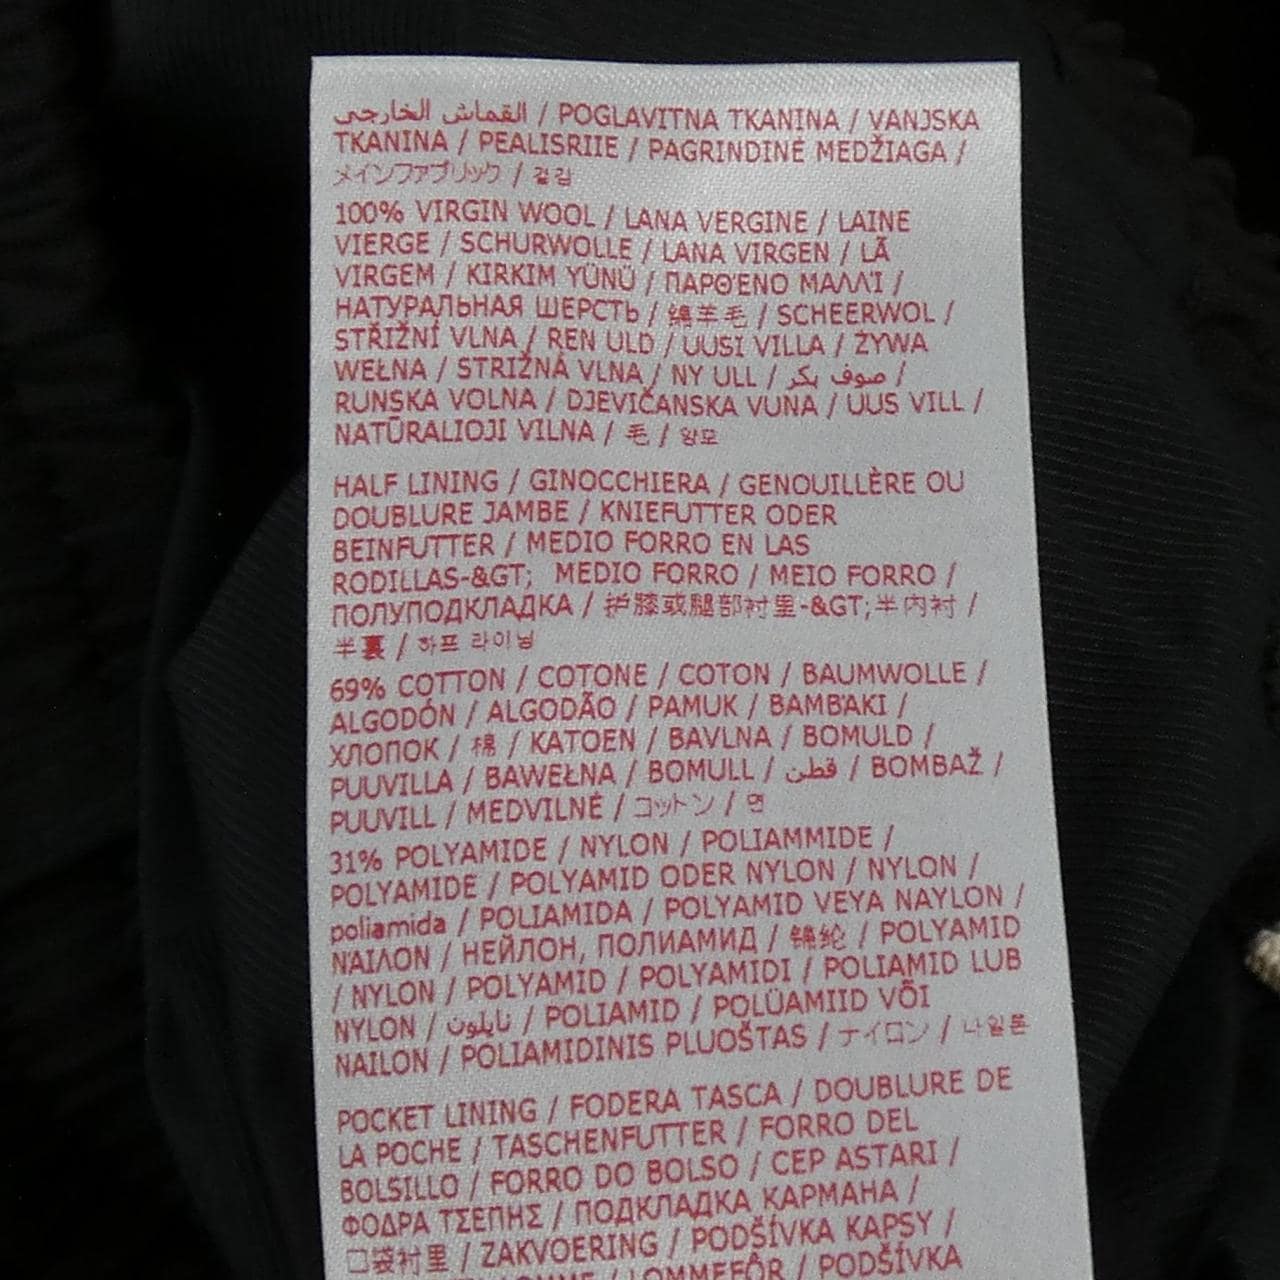 القماش الخارجي / POGLAVITNA TKANINA / VANJSKA
TKANINA / PEALISRIIE / PAGRINDINĖ MEDŽIAGA /
メインファブリック / 겉감
100% VIRGIN WOOL / LANA VERGINE / LAINE
VIERGE / SCHURWOLLE / LANA VIRGEN / LÃ
VIRGEM / KIRKIM YÜNÜ / ΠΑΡΘΈΝΟ ΜΑΛΛΊ /
НАТУРАЛЬНАЯ ШЕРСТЬ / 绵羊毛 / SCHEERWOL /
STŘIŽNÍ VLNA / REN ULD / UUSI VILLA / ŻYWA
WEŁNA / STRIŽNÁ VLNA / NY ULL / صوف بكر /
RUNSKA VOLNA / DJEVIČANSKA VUNA / UUS VILL /
NATŪRALIOJI VILNA / 毛 / 양모
HALF LINING / GINOCCHIERA / GENOUILLÈRE OU
DOUBLURE JAMBE / KNIEFUTTER ODER
BEINFUTTER / MEDIO FORRO EN LAS
RODILLAS-&GT; MEDIO FORRO / MEIO FORRO /
ПОЛУПОДКЛАДКА / 护膝或腿部衬里-&GT;半内衬 /
半裏 / 하프 라이닝
69% COTTON / COTONE / COTON / BAUMWOLLE /
ALGODÓN / ALGODÃO / PAMUK / ΒΑΜΒΆΚΙ /
ХЛОПОК / 棉 / KATOEN / BAVLNA / BOMULD /
PUUVILLA / BAWEŁNA / BOMULL / قطن / BOMBAŽ /
PUUVILL / MEDVILNĖ / コットン / 면
31% POLYAMIDE / NYLON / POLIAMMIDE /
POLYAMIDE / POLYAMID ODER NYLON / NYLON /
poliamida / POLIAMIDA / POLYAMID VEYA NAYLON /
ΝΆΙΛΟΝ / НЕЙЛОН, ПОЛИАМИД / 锦纶 / POLYAMID
/ NYLON / POLYAMID / POLYAMIDI / POLIAMID LUB
NYLON / نايلون / POLIAMID / POLÜAMIID VÕI
NAILON / POLIAMIDINIS PLUOŠTAS / ナイロン / 나일론
POCKET LINING / FODERA TASCA / DOUBLURE DE
LA POCHE / TASCHENFUTTER / FORRO DEL
BOLSILLO / FORRO DO BOLSO / CEP ASTARI /
ΦΟΔΡΑ ΤΣΕΠΗΣ / ПОДКЛАДКА КАРМАНА /
口袋衬里 / ZAKVOERING / PODŠÍVKA KAPSY /
LOMMEFÔR / PODŠÍVKA